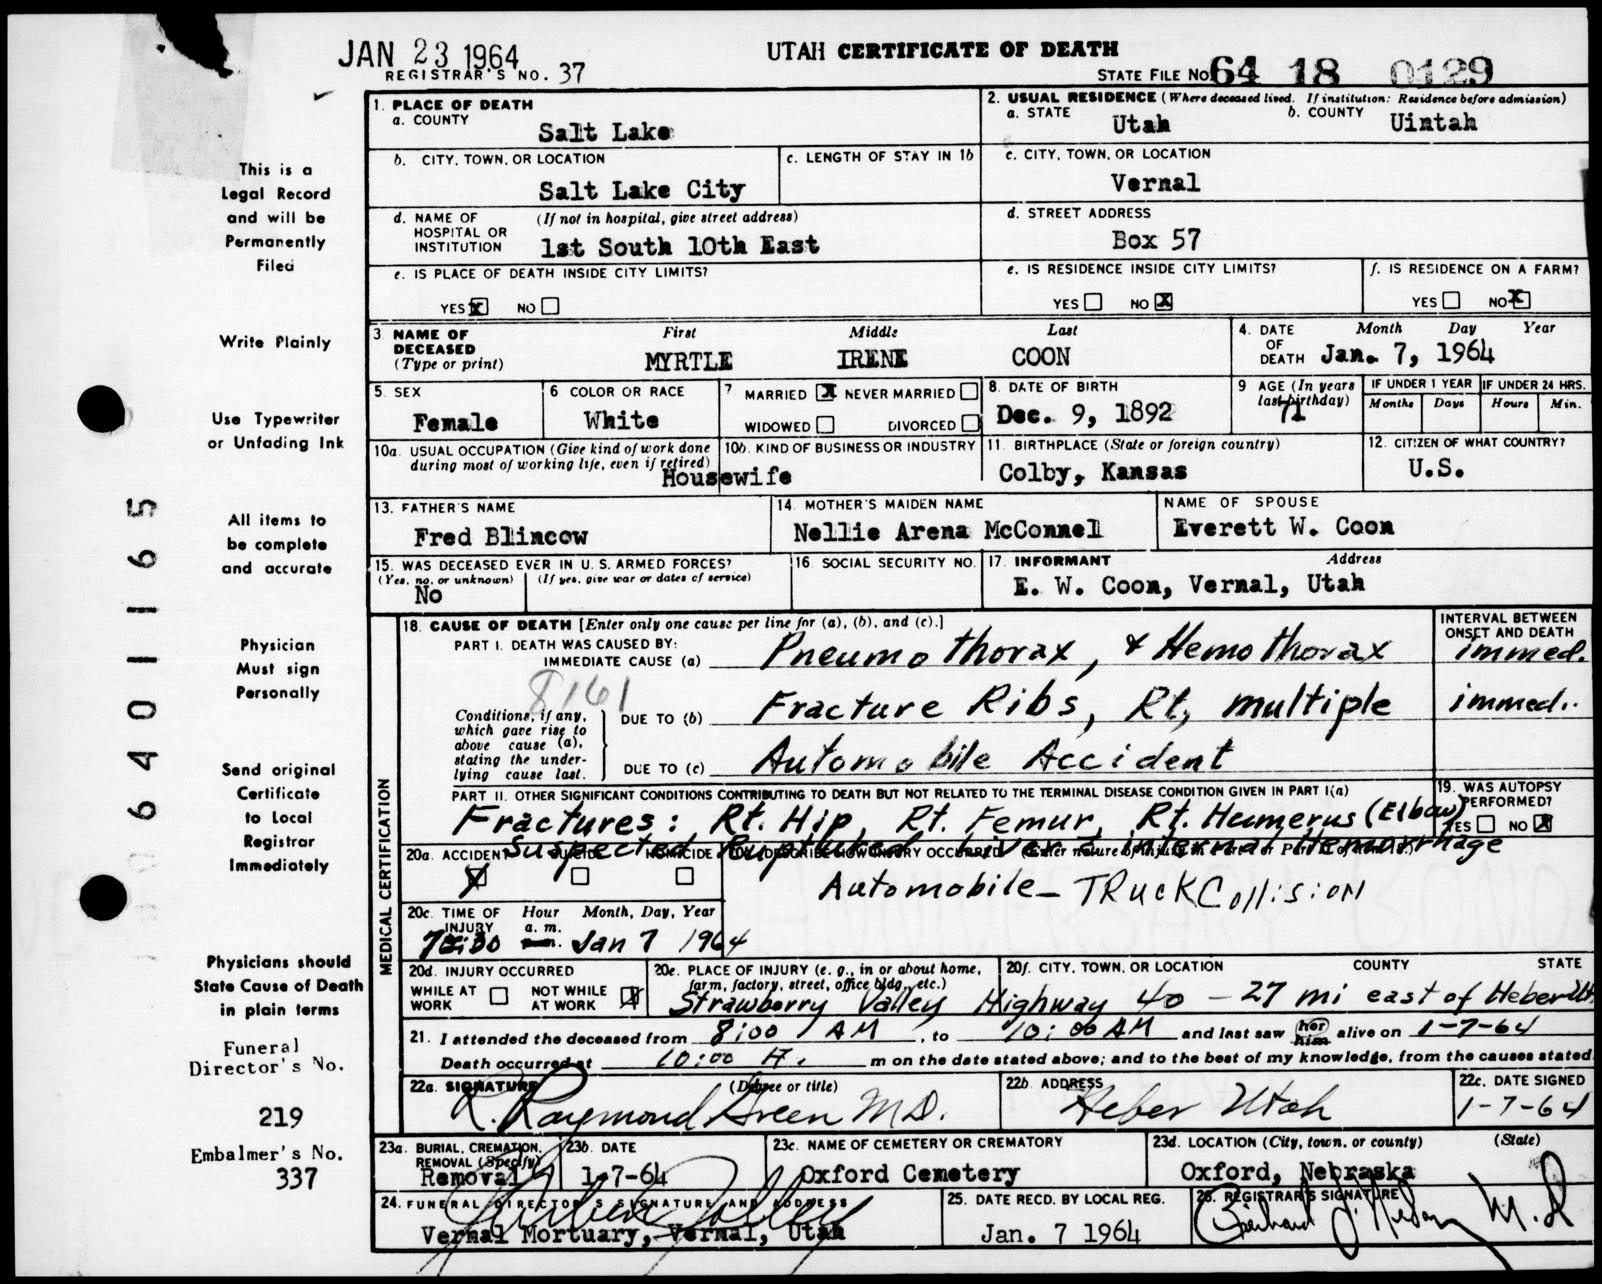 JAN 23 1964
REGISTRAR'S NO. 37
UTAH CERTIFICATE OF DEATH
STATE FILE NO. 64 18 0129
This is a
Legal Record
and will be
Permanently
Filed
Write Plainly
Use Typewriter
or Unfading Ink
All items to
be complete
and accurate
Physician
Must sign
Personally
Send original
Certificate
to Local
Registrar
Immediately
Physicians should
State Cause of Death
in plain terms
Funeral
Director's No.
219
Embalmer's No.
337
6401165
1. PLACE OF DEATH
a. COUNTY
Salt Lake
2. USUAL RESIDENCE (Where deceased lived. If institution: Residence before admission)
a. STATE Utah b. COUNTY Uintah
b. CITY, TOWN, OR LOCATION
Salt Lake City
c. LENGTH OF STAY IN 1b
c. CITY, TOWN, OR LOCATION
Vernal
d. NAME OF HOSPITAL OR INSTITUTION (If not in hospital, give street address)
1st South 10th East
d. STREET ADDRESS
Box 57
e. IS PLACE OF DEATH INSIDE CITY LIMITS?
YES X NO
e. IS RESIDENCE INSIDE CITY LIMITS?
YES NO X
f. IS RESIDENCE ON A FARM?
YES NO X
3 NAME OF DECEASED (Type or print)
First Middle Last
MYRTLE IRENE COON
4. DATE OF DEATH Month Day Year
Jan. 7, 1964
5. SEX
Female
6 COLOR OR RACE
White
7 MARRIED X NEVER MARRIED
WIDOWED DIVORCED
8. DATE OF BIRTH
Dec. 9, 1892
9 AGE (In years last birthday)
71
IF UNDER 1 YEAR
Months Days
IF UNDER 24 HRS.
Hours Min.
10a. USUAL OCCUPATION (Give kind of work done during most of working life, even if retired)
Housewife
10b. KIND OF BUSINESS OR INDUSTRY
11 BIRTHPLACE (State or foreign country)
Colby, Kansas
12. CITIZEN OF WHAT COUNTRY?
U.S.
13. FATHER'S NAME
Fred Blincow
14. MOTHER'S MAIDEN NAME
Nellie Arena McConnel
NAME OF SPOUSE
Everett W. Coon
15. WAS DECEASED EVER IN U. S. ARMED FORCES?
(Yes, no, or unknown) (If yes, give war or dates of service)
No
16. SOCIAL SECURITY NO.
17. INFORMANT Address
E. W. Coon, Vernal, Utah
MEDICAL CERTIFICATION
18. CAUSE OF DEATH [Enter only one cause per line for (a), (b), and (c).]
INTERVAL BETWEEN ONSET AND DEATH
PART I. DEATH WAS CAUSED BY:
IMMEDIATE CAUSE (a) Pneumothorax, & Hemothorax immed.
8161
Conditions, if any, which gave rise to above cause (a), stating the underlying cause last.
DUE TO (b) Fracture Ribs, Rt, multiple immed.
DUE TO (c) Automobile Accident
PART II. OTHER SIGNIFICANT CONDITIONS CONTRIBUTING TO DEATH BUT NOT RELATED TO THE TERMINAL DISEASE CONDITION GIVEN IN PART I(a)
Fractures: Rt. Hip, Rt. Femur, Rt. Humerus (Elbow)
Suspected Ruptured Liver & internal Hemorrhage
19. WAS AUTOPSY PERFORMED?
YES NO X
20a. ACCIDENT SUICIDE HOMICIDE
X
20b. DESCRIBE HOW INJURY OCCURRED (Enter nature of injury in Part I or Part II of item 18.)
Automobile - TRuck Collision
20c. TIME OF INJURY Hour Month, Day, Year
a. m.
Jan 7 1964
20d. INJURY OCCURRED
WHILE AT WORK NOT WHILE AT WORK X
20e. PLACE OF INJURY (e. g., in or about home, farm, factory, street, office bldg., etc.)
20f. CITY, TOWN, OR LOCATION COUNTY STATE
Strawberry Valley Highway 40 - 27 mi east of Heber Ut.
21. I attended the deceased from 8:00 AM, to 10:00 AM and last saw her him alive on 1-7-64
Death occurred at 10:00 A. m on the date stated above; and to the best of my knowledge, from the causes stated.
22a. SIGNATURE (Degree or title)
R. Raymond Green M.D.
22b. ADDRESS
Heber Utah
22c. DATE SIGNED
1-7-64
23a. BURIAL, CREMATION, REMOVAL (Specify)
Removal
23b. DATE
1-7-64
23c. NAME OF CEMETERY OR CREMATORY
Oxford Cemetery
23d. LOCATION (City, town, or county) (State)
Oxford, Nebraska
24. FUNERAL DIRECTOR'S SIGNATURE AND ADDRESS
Vernal Mortuary, Vernal, Utah
25. DATE RECD. BY LOCAL REG.
Jan. 7 1964
26. REGISTRAR'S SIGNATURE
M.D